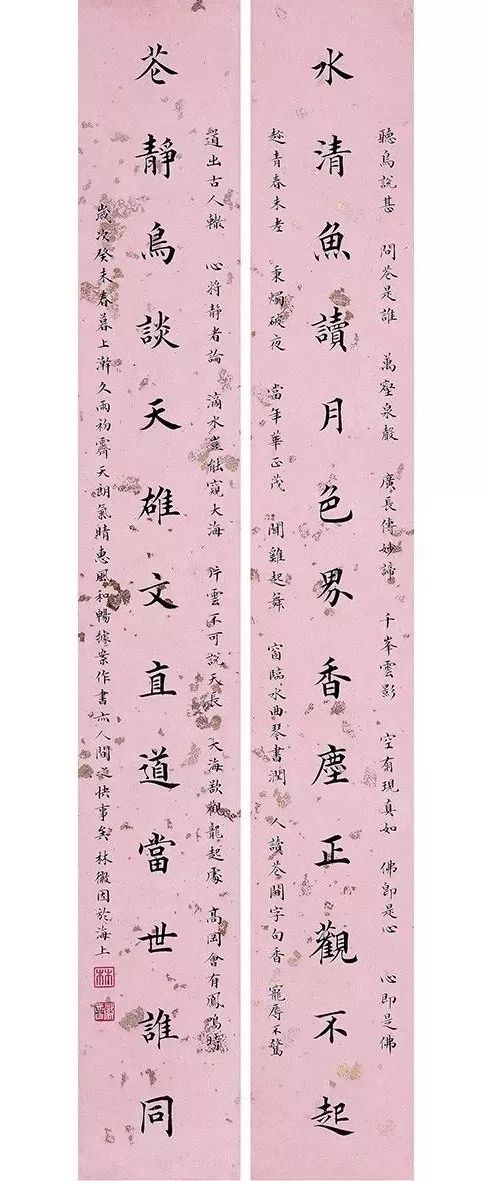 聽鳥説甚 問花是誰 萬壑泉聲 廣長傳妙諦 千峯雲影 空有現真如 佛即是心 心即是佛
水清魚讀月色界香塵正觀不起
趂青春未老 秉燭破夜 當年華正茂 聞雞起舞 窗臨水曲琴書潤 人讀花間字句香 寵辱不驚
道出古人轍 心将静者論 滴水豈能窺大海 片雲不可説天長 大海欲觀龍起處 高岡會有鳳鳴時
花靜鳥談天雄文直道當世誰同
歲次癸未春暮上澣久雨初霽天朗氣晴惠風和暢據案作書亦人間快事矣林徽因於海上